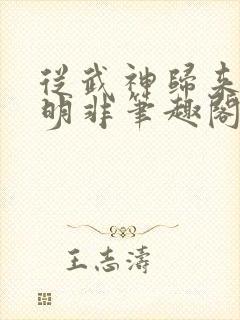 從武神歸来
明非筆趣閣
王志濤